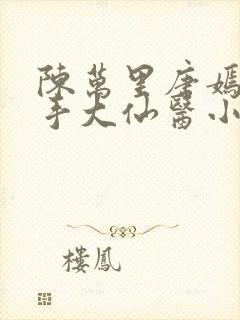 陳萬里唐嫣
手大仙醫小
樓鳳